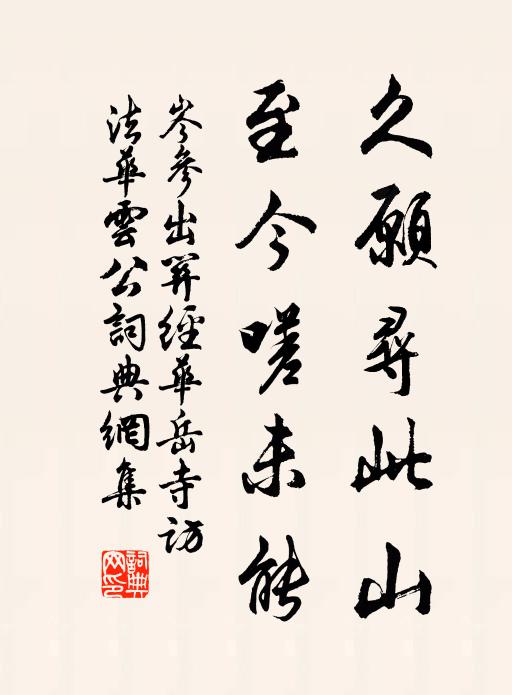 久願尋此山
至今嗟未能
岑參出關經華岳寺訪
法華雲公詞典網集
詞典網印